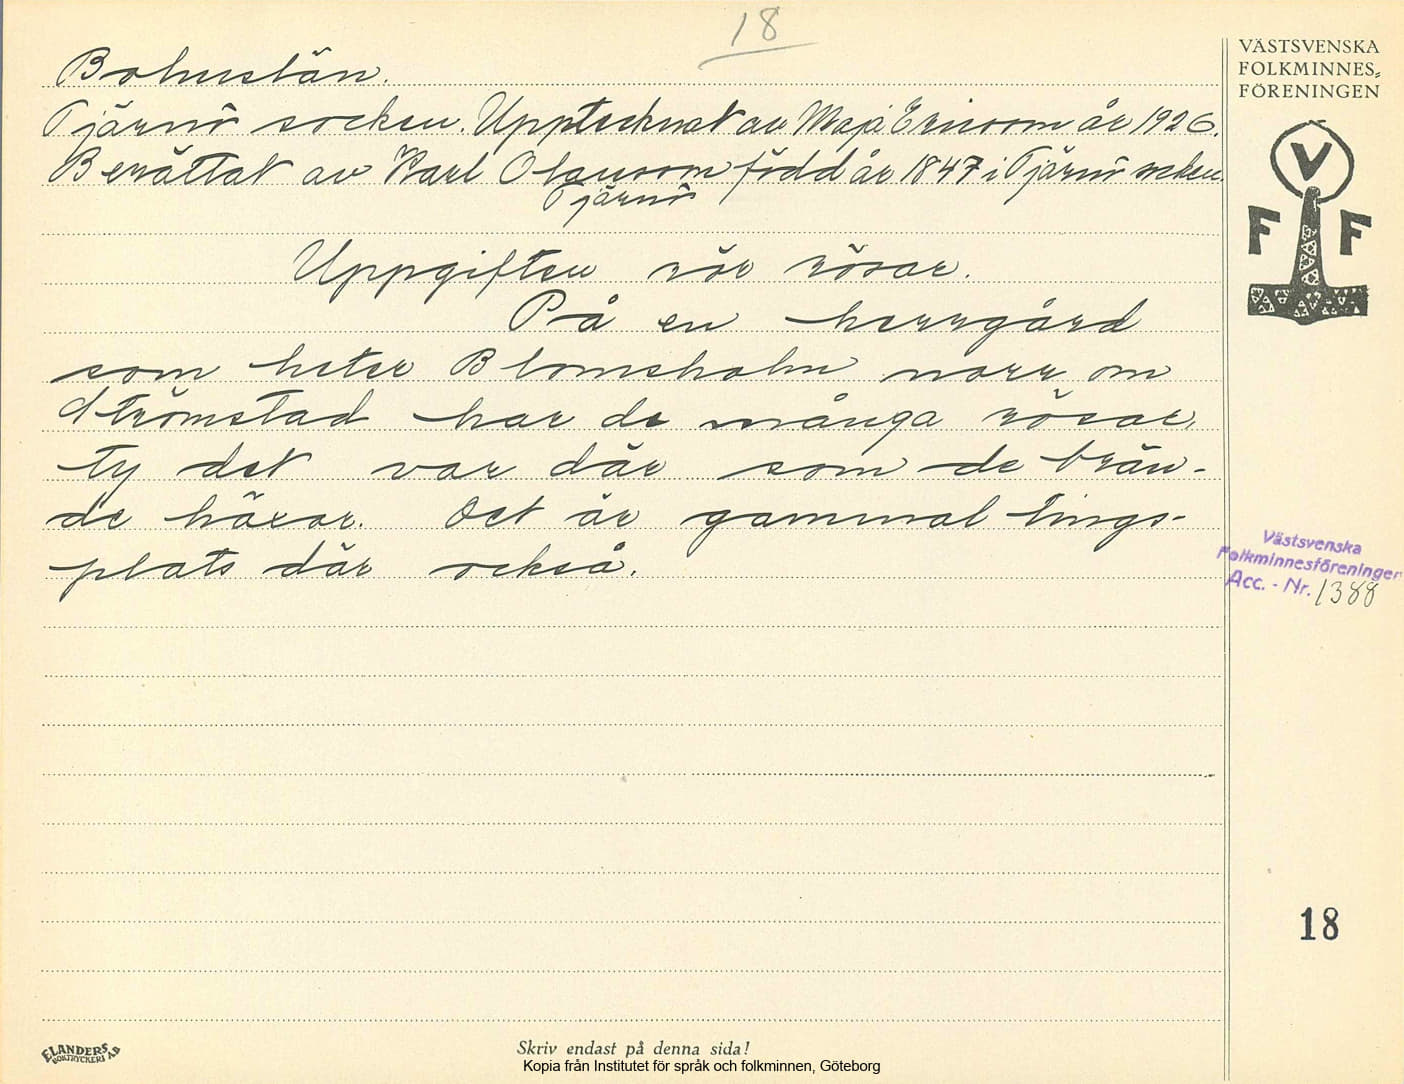 18
VÄSTSVENSKA
FOLKMINNES=
FÖRENINGEN
V
F F
Bohuslän.
Tjärnö socken. Upptecknat av Maja Ericsson år 1926.
Berättat av Karl Olausson född år 1847 i Tjärnö socken.
Tjärnö
Uppgiften rör rösar.
På en herrgård
som heter Blomsholm norr om
Strömstad har de många rösar,
ty det var där som de brän-
de häxor. Det är gammal tings-
plats där också.
Västsvenska
Folkminnesföreningen
Acc. - Nr. 1388
18
ELANDERS
BOKTRYCKERI AB
Skriv endast på denna sida!
Kopia från Institutet för språk och folkminnen, Göteborg